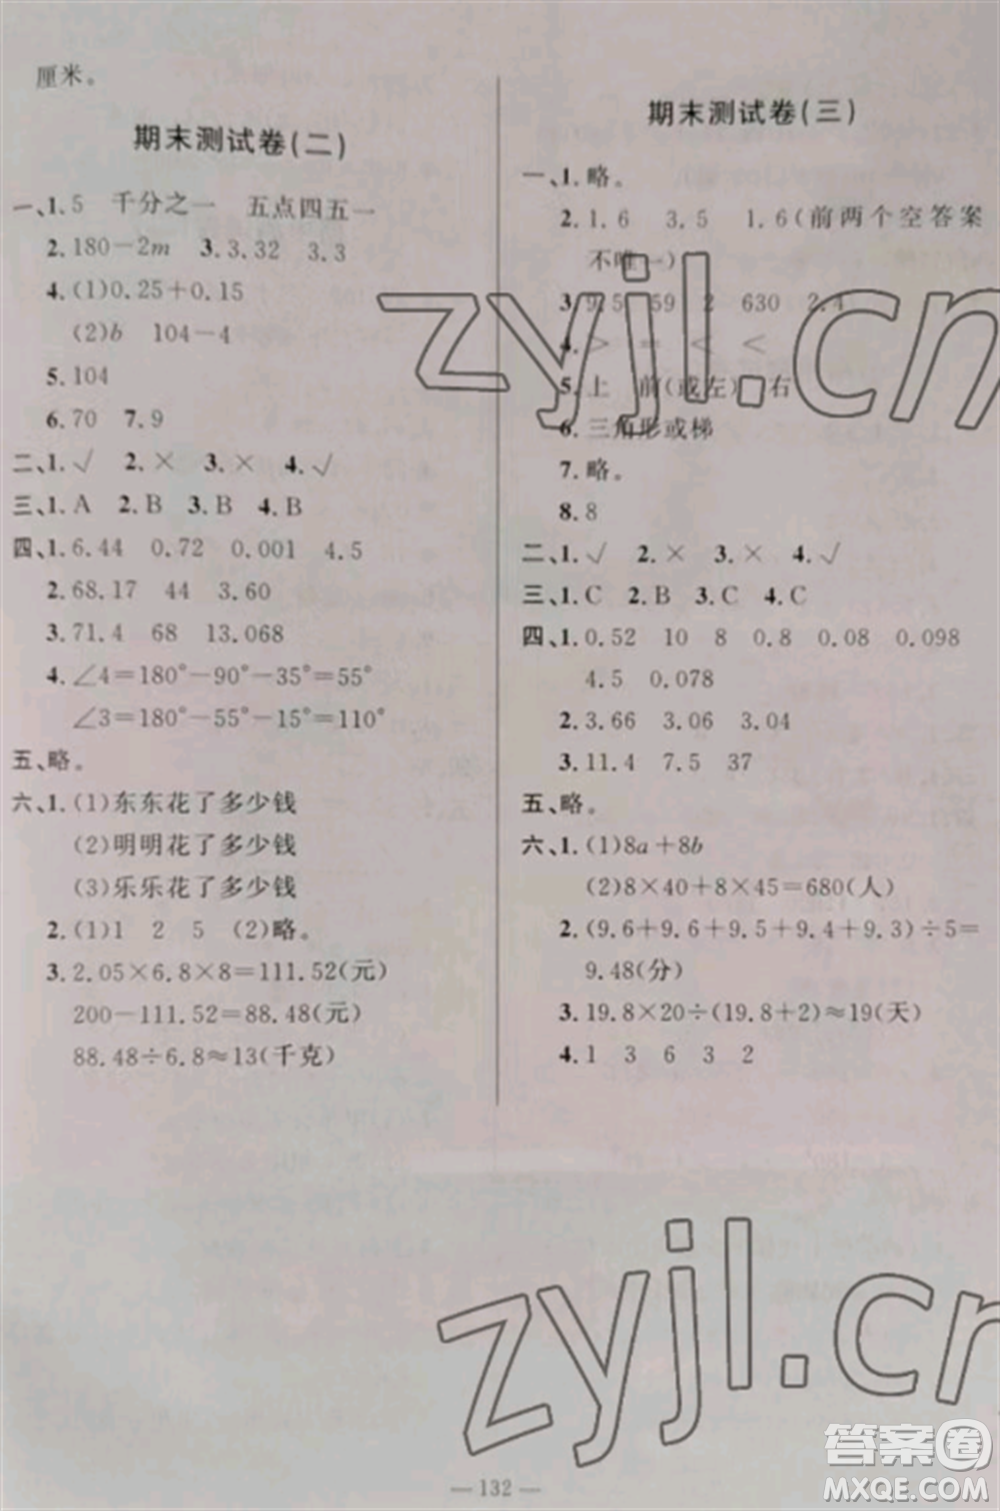 厘米。
期末测试卷(二)
一、1.5 千分之一 五点四五一
2.180-2m 3.3.32 3.3
4.(1)0.25+0.15
(2)b 104-4
5.104
6.70 7.9
二、1.√ 2.× 3.× 4.√
三、1.A 2.B 3.B 4.B
四、1.6.44 0.72 0.001 4.5
2.68.17 44 3.60
3.71.4 68 13.068
4.∠4=180°-90°-35°=55°
∠3=180°-55°-15°=110°
五、略。
六、1.(1)东东花了多少钱
(2)明明花了多少钱
(3)乐乐花了多少钱
2.(1)1 2 5 (2)略。
3.2.05×6.8×8=111.52(元)
200-111.52=88.48(元)
88.48÷6.8≈13(千克)
期末测试卷(三)
一、1.略。
2.1.6 3.5 1.6(前两个空答案
不唯一)
3.9.5 59 2 630 2.4
4.> = < <
5.上 前(或左) 右
6.三角形或梯
7.略。
8.8
二、1.√ 2.× 3.× 4.√
三、1.C 2.B 3.C 4.C
四、1.0.52 10 8 0.8 0.08 0.098
4.5 0.078
2.3.66 3.06 3.04
3.11.4 7.5 37
五、略。
六、1.(1)8a+8b
(2)8×40+8×45=680(人)
2.(9.6+9.6+9.5+9.4+9.3)÷5=
9.48(分)
3.19.8×20÷(19.8+2)≈19(天)
4.1 3 6 3 2
zyjl.cn
zyjl.cn
答案圈
MXQE.COM
— 132 —